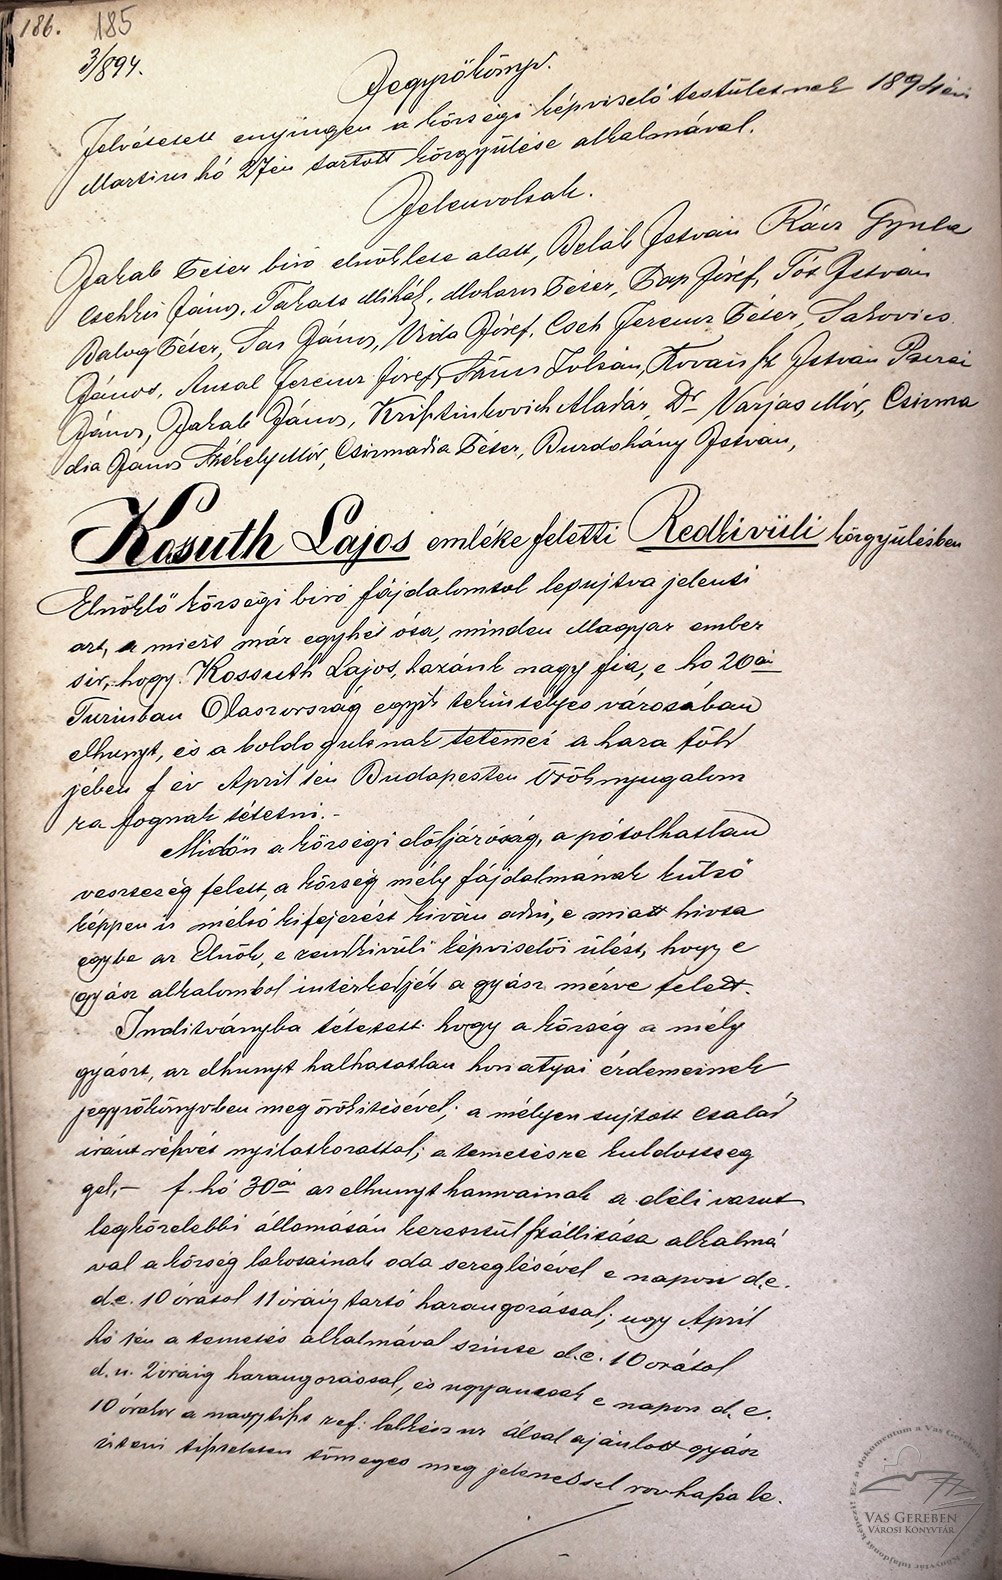 186. 185
3/894.
Jegyzőkönyv.
Felvétetett enyingen a községi képviselő testületnek 1894 évi
Martius hó 27én tartott közgyülése alkalmával.
Jelenvoltak.
Jakab Péter biró elnöklete alatt, Beláb István Rácz Gyula
Csehki János, Takats Mihál, Mohari Péter, Pap József, Tót István
Balog Péter, Sas János, Vida József, Cseh Ferencz Péter, Sakovics
János, Antal Ferencz József, Szűcs Zoltán, Kovats fk István Pserei
János, Jakab János, Krisztinkovich Aladár, Dr Varjas Mór, Csizma
dia János Székely Mór, Csizmadia Péter, Burdohány István,
Kosuth Lajos emléke feletti Redkivüli közgyülésben
Elnöklő községi biró fájdalomtol lesujtva jelenti
azt, a miért már egy hét óta, minden Magyar ember
sir, hogy Kossuth Lajos, hazánk nagy fia, e ho 20án
Turinban Olaszország egyik tekintélyes városában
elhunyt, és a boldogultnak tetemei a haza föld
jében f év April 1én Budapesten örök nyugalom
ra fognak tétetni.-
Midőn a községi elöljáróság, a pótolhatlan
veszteség felett, a község mély fájdalmának külső
képpen is méltó kifejezést kiván adni, e miatt hivta
egybe az Elnök, e rendkivüli képviselői ülést, hogy e
gyász alkalombol intézkedjék a gyász mérve felett.
Inditványba tétetett hogy a község a mély
gyászt, az elhunyt halhatatlan honatyai érdemeinek
jegyzőkönyvben meg örökitésével; a mélyen sujtott család
iránt részvét nyilatkozattal; a temetésre küldöttség
gel,- f. hó 30án az elhunyt hamvainak a déli vasut
legközelebbi állomásán keresztül szállitása alkalmá
val a község lakosainak oda sereglésével e napon d.e.
d.e. 10 órától 11 óráig tartó harangozással; ugy April
hó 1én a temetés alkalmával szinte d.e. 10 órátol
d.u. 2 óráig harangozással, és ugyancsak e napon d.e.
10 órakor a nagytiszt ref: lelkész ur által ajánlott gyász
isteni tiszteleten tömeges meg jelenéssel rovhassa le.
VAS GEREBEN
VÁROSI KÖNYVTÁR